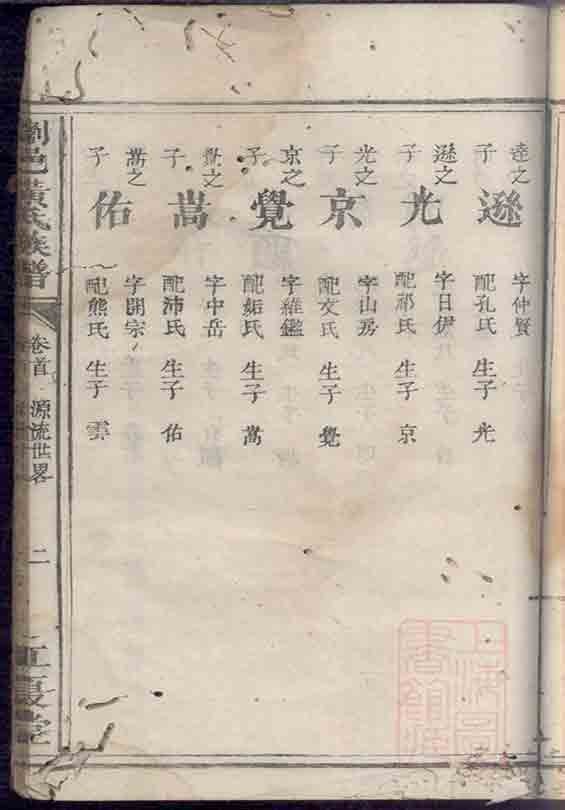 逵之子
遜
字仲賢
配孔氏 生子 光
遜之子
光
字日伊
配祁氏 生子 京
光之子
京
字山房
配文氏 生子 覺
京之子
覺
字維鑑
配姤氏 生子 嵩
覺之子
嵩
字中岳
配沛氏 生子 佑
嵩之子
佑
字開宗
配熊氏 生子 雲
瀏邑黃氏族譜
卷首 源流世畧
二
江夏堂
上海圖書館藏